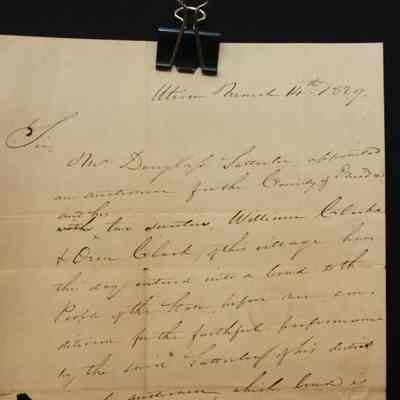 March 14th 1829.
Sir,
Mr Douglass Satterlee appointed
an auctioneer for the County of
and his
two sureties, William Clarke
& Orrin Clark, of this village have
this day entered into a bond to the
People of the State, before me, con-
ditioned for the faithful performance
by the said Satterlee of his duties
auctioneer, which bond is